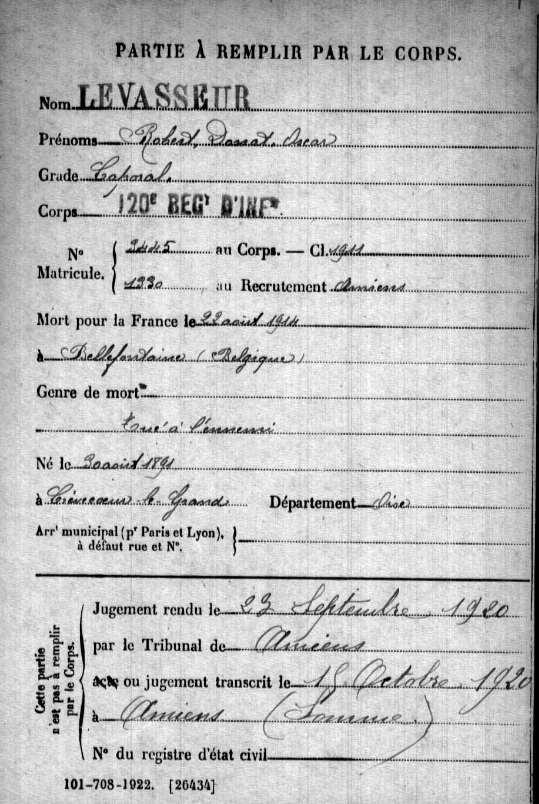 PARTIE À REMPLIR PAR LE CORPS.
Nom LEVASSEUR
Prénoms Robert, Donat, Oscar
Grade Caporal.
Corps 120e REGt D'INFie
No Matricule. { 2445 au Corps. — Cl. 1911
1330 au Recrutement Amiens
Mort pour la France le 22 août 1914
à Bellefontaine (Belgique)
Genre de mort
tué à l'ennemi
Né le 30 août 1891
à Crèvecœur le Grand Département Oise
Arrt municipal (pr Paris et Lyon),
à défaut rue et No.
Cette partie n'est pas à remplir par le Corps.
Jugement rendu le 23 Septembre 1920
par le Tribunal de Amiens
acte ou jugement transcrit le 15 Octobre 1920
à Amiens (Somme)
No du registre d'état civil
101-708-1922. [26434]